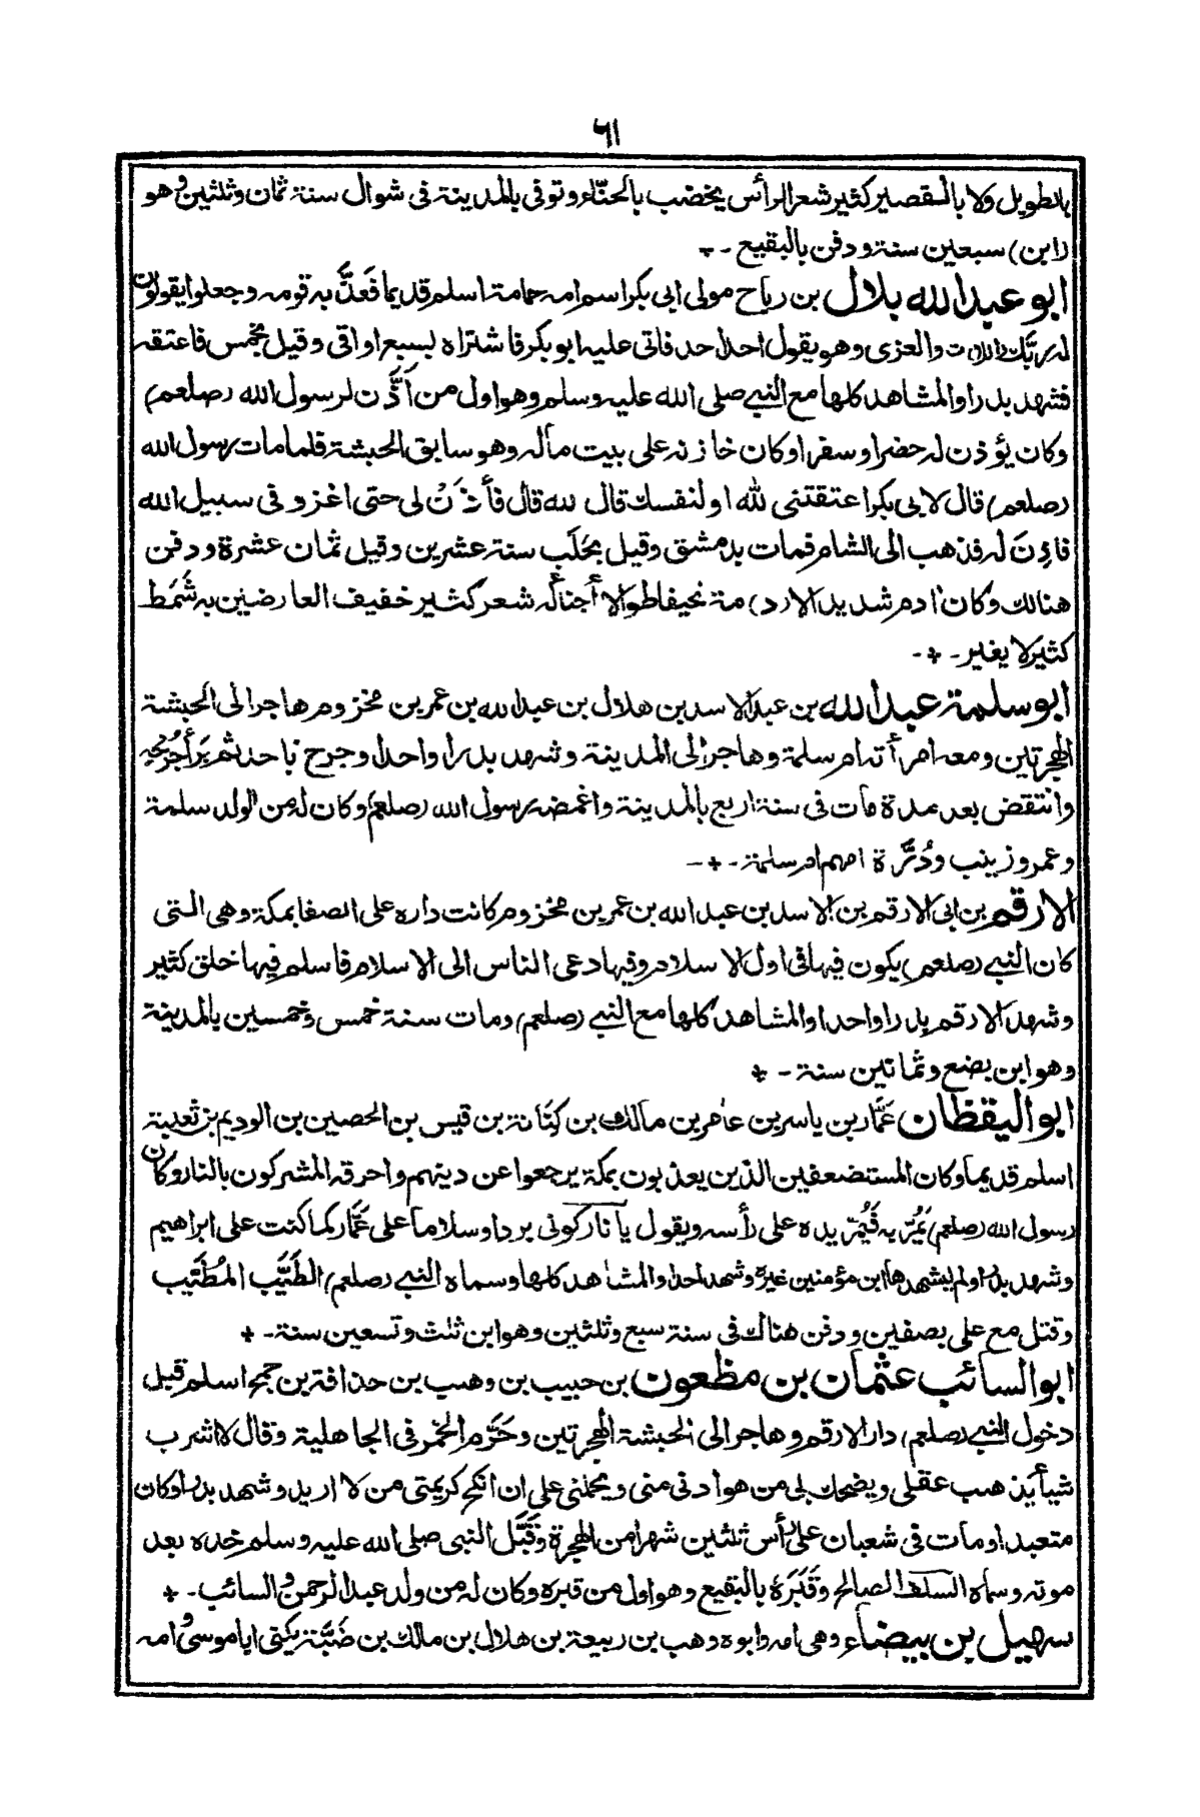 ٦١
بالطويل ولا بالقصير كثير شعر الرأس يخضب بالحنّاء وتوفى بالمدينة فى شوال سنة ثمان وثلثين وهو
(ابن) سبعين سنة ودفن بالبقيع -+
ابو عبد الله بلال بن رباح مولى ابى بكر اسم امه حمامة اسلم قديما فَعذَّبه قومه وجعلوا يقولون
له ربّك اللات والعزى وهو يقول احد احد فاتى عليه ابو بكر فاشتراه بسبع اواقى وقيل بخمس فاعتقه
فشهد بدرا والمشاهد كلها مع النبى صلى الله عليه وسلم وهو اول من اَذَّن لرسول الله (صلعم)
وكان يؤذن له حضرا وسفرا وكان خازنه على بيت ماله وهو سابق الحبشة فلما مات رسول الله
(صلعم) قال لابى بكر اعتقتنى لله او لنفسك قال لله قال فأْذَنْ لى حتى اغزو فى سبيل الله
فاذِنَ له فذهب الى الشام فمات بدمشق وقيل بحَلَب سنة عشرين وقيل ثمان عشرة ودفن
هنالك وكان ادم شديد الاد(مة نحيفا طوالا أجنأ له شعر كثير خفيف العارضين به شَمَط
كثير لا يغير -+-
ابو سلمة عبد الله بن عبد الاسد بن هلال بن عبد الله بن عمر بن مخزوم هاجر الى الحبشة
الهجرتين ومعه امرأته ام سلمة وهاجر الى المدينة وشهد بدرا واحدا وجرح باحد ثم بَرأ جُرْحُه
وانتقض بعد مدة مات فى سنة اربع بالمدينة واغمضه رسول الله (صلعم) وكان له من الولد سلمة
وعمر وزينب ودُرَّة امهم ام سلمة -+-
الارقم بن ابى الارقم بن الاسد بن عبد الله بن عمر بن مخزوم كانت داره على الصفا بمكة وهى التى
كان النبى (صلعم) يكون فيها فى اول الاسلام وفيها دعى الناس الى الاسلام فاسلم فيها خلق كثير
وشهد الارقم بدرا واحدا والمشاهد كلها مع النبى (صلعم) ومات سنة خمس وخمسين بالمدينة
وهو ابن بضع وثمانين سنة -+
ابو اليقظان عَمَّار بن ياسر بن عامر بن مالك بن كِنَانة بن قيس بن الحصين بن الوديم بن ثعلبة
اسلم قديما وكان المستضعفين الذين يعذبون بمكة يرجعوا عن دينهم واحرقه المشركون بالنار وكان
رسول الله (صلعم) يَمُرّ به فَيُمِرّ يده على رأسه ويقول يا نار كونى بردا وسلاما على عَمَّار كما كنت على ابراهيم
وشهد بدرا ولم يشهدها ابن مؤمنين غيره وشهد احدا والمشاهد كلها وسماه النبى (صلعم) الطَيِّب المُطَيَّب
وقتل مع على بصفين ودفن هناك فى سنة سبع وثلثين وهو ابن ثلث وتسعين سنة -+
ابو السائب عثمان بن مظعون بن حبيب بن وهب بن حذافة بن جمح اسلم قبل
دخول النبى (صلعم) دار الارقم وهاجر الى الحبشة الهجرتين وحَرَّم الخمر فى الجاهلية وقال لا اشرب
شيأ يذهب عقلى ويضحك بى من هو ادنى منى ويحملنى على ان انكح كريمتى من لا اريد وشهد بدرا وكان
متعبدا ومات فى شعبان على رأس ثلثين شهرا من الهجرة وقَبَّل النبى صلى الله عليه وسلم خده بعد
موته وسماه السلف الصالح وقَبَرَهُ بالبقيع وهو اول من قبره وكان له من ولد عبد الرحمن والسائب -+
سهيل بن بيضاء وهى امه وابوه وهب بن ربيعة بن هلال بن مالك بن ضَبَّة يكنى ابا موسى وامه